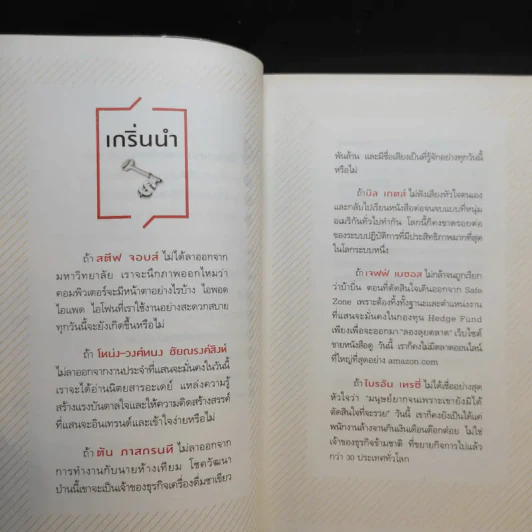 เกริ่นนำ
ถ้า สตีฟ จอบส์ ไม่ได้ลาออกจาก
มหาวิทยาลัย เราจะนึกภาพออกไหมว่า
คอมพิวเตอร์จะมีหน้าตาอย่างไรบ้าง ไอพอด
ไอแพด ไอโฟนที่เราใช้งานอย่างสะดวกสบาย
ทุกวันนี้จะยังเกิดขึ้นหรือไม่
ถ้า โหน่ง-วงศ์ทนง ชัยณรงค์สิงห์
ไม่ลาออกจากงานประจำที่แสนจะมั่นคงในวันนี้
เราจะได้อ่านนิตยสารอะเดย์ แหล่งความรู้
สร้างแรงบันดาลใจและให้ความคิดสร้างสรรค์
ที่แสนจะอินเทรนด์และเข้าใจง่ายหรือไม่
ถ้า ตัน ภาสกรนที ไม่ลาออกจาก
การทำงานกับนายห้างเทียม โชควัฒนา
ป่านนี้เขาจะเป็นเจ้าของธุรกิจเครื่องดื่มชาเขียว
พันล้าน และมีชื่อเสียงเป็นที่รู้จักอย่างทุกวันนี้
หรือไม่
ถ้า บิล เกตส์ ไม่ฟังเสียงหัวใจตนเอง
และกลับไปเรียนหนังสือต่อจนจบแบบที่หนุ่ม
อเมริกันทั่วไปทำกัน โลกนี้ก็คงขาดรอยต่อ
ของระบบปฏิบัติการที่มีประสิทธิภาพมากที่สุด
ในโลกระบบหนึ่ง
ถ้า เจฟฟ์ เบซอส ไม่กล้าจนถูกเรียก
ว่าบ้าบิ่น ตอนที่ตัดสินใจเดินออกจาก Safe
Zone เพราะต้องทิ้งทั้งฐานะและตำแหน่งงาน
ที่แสนจะมั่นคงในกองทุน Hedge Fund
เพียงเพื่อจะออกมา “ลองลุยตลาด” เว็บไซต์
ขายหนังสือดู วันนี้ เราก็คงไม่มีตลาดออนไลน์
ที่ใหญ่ที่สุดอย่าง amazon.com
ถ้า ไบรอัน เทรซี่ ไม่ได้เชื่ออย่างสุด
หัวใจว่า “มนุษย์ยากจนเพราะเขายังมิได้
ตัดสินใจที่จะรวย” วันนี้ เขาก็คงยังเป็นได้แค่
พนักงานล้างจานกินเงินเดือนต๊อกต๋อย ไม่ใช่
เจ้าของธุรกิจข้ามชาติ ที่ขยายกิจการไปแล้ว
กว่า 30 ประเทศทั่วโลก